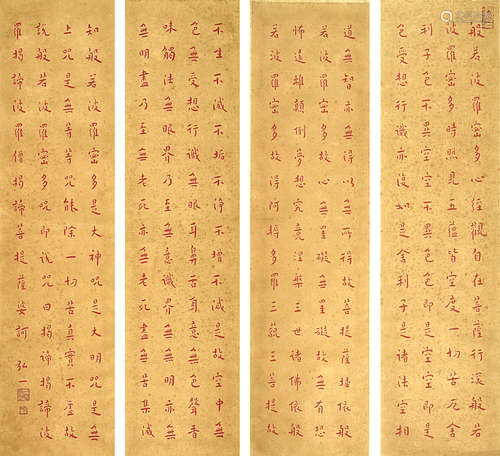 般若波羅密多心經觀自在菩薩行深般若
波羅密多時照見五蘊皆空度一切苦厄舍
利子色不異空空不異色色即是空空即是
色受想行識亦復如是舍利子是諸法空相
道無智亦無得以無所得故菩提薩埵依般
若波羅密多故心無罣礙無罣礙故無有恐
怖遠離顛倒夢想究竟涅槃三世諸佛依般
若波羅密多故得阿耨多羅三藐三菩提故
不生不滅不垢不淨不增不減是故空中無
色無受想行識無眼耳鼻舌身意無色聲香
味觸法無眼界乃至無意識界無無明亦無
無明盡乃至無老死亦無老死盡無苦集滅
知般若波羅密多是大神咒是大明咒是無
上咒是無等等咒能除一切苦真實不虛故
說般若波羅密多咒即說咒曰揭諦揭諦波
羅揭諦波羅僧揭諦菩提薩婆訶 弘一